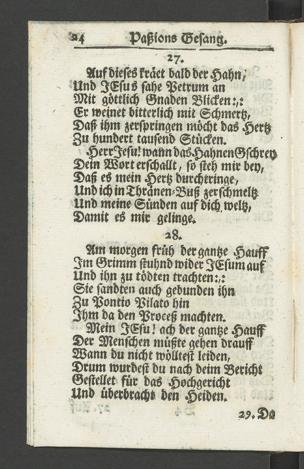 24 Paßions Gesang.
27.
Auf dieses kräet bald der Hahn,
Und JEsus sahe Petrum an
Mit göttlich Gnaden Blicken:,:
Er weinet bitterlich mit Schmertz,
Daß ihm zerspringen möcht das Hertz
Zu hundert tausend Stücken.
Herr Jesu! wann das Hahnen Gschrey
Dein Wort erschallt, so steh mir bey,
Daß es mein Hertz durchtringe,
Und ich in Thränen-Buß zerschmeltz
Und meine Sünden auf dich weltz,
Damit es mir gelinge.
28.
Am morgen früh der gantze Hauff
Im Grimm stuhnd wider JEsum auf
Und ihn zu tödten trachten:,:
Sie sandten auch gebunden ihn
Zu Pontio Pilato hin
Ihm da den Proceß machten.
Mein JEsu! ach der gantze Hauff
Der Menschen müßte gehen drauff
Wann du nicht wölltest leiden,
Drum wurdest du nach deim Bericht
Gestellet für das Hochgericht
Und überbracht den Heiden.
29. Da